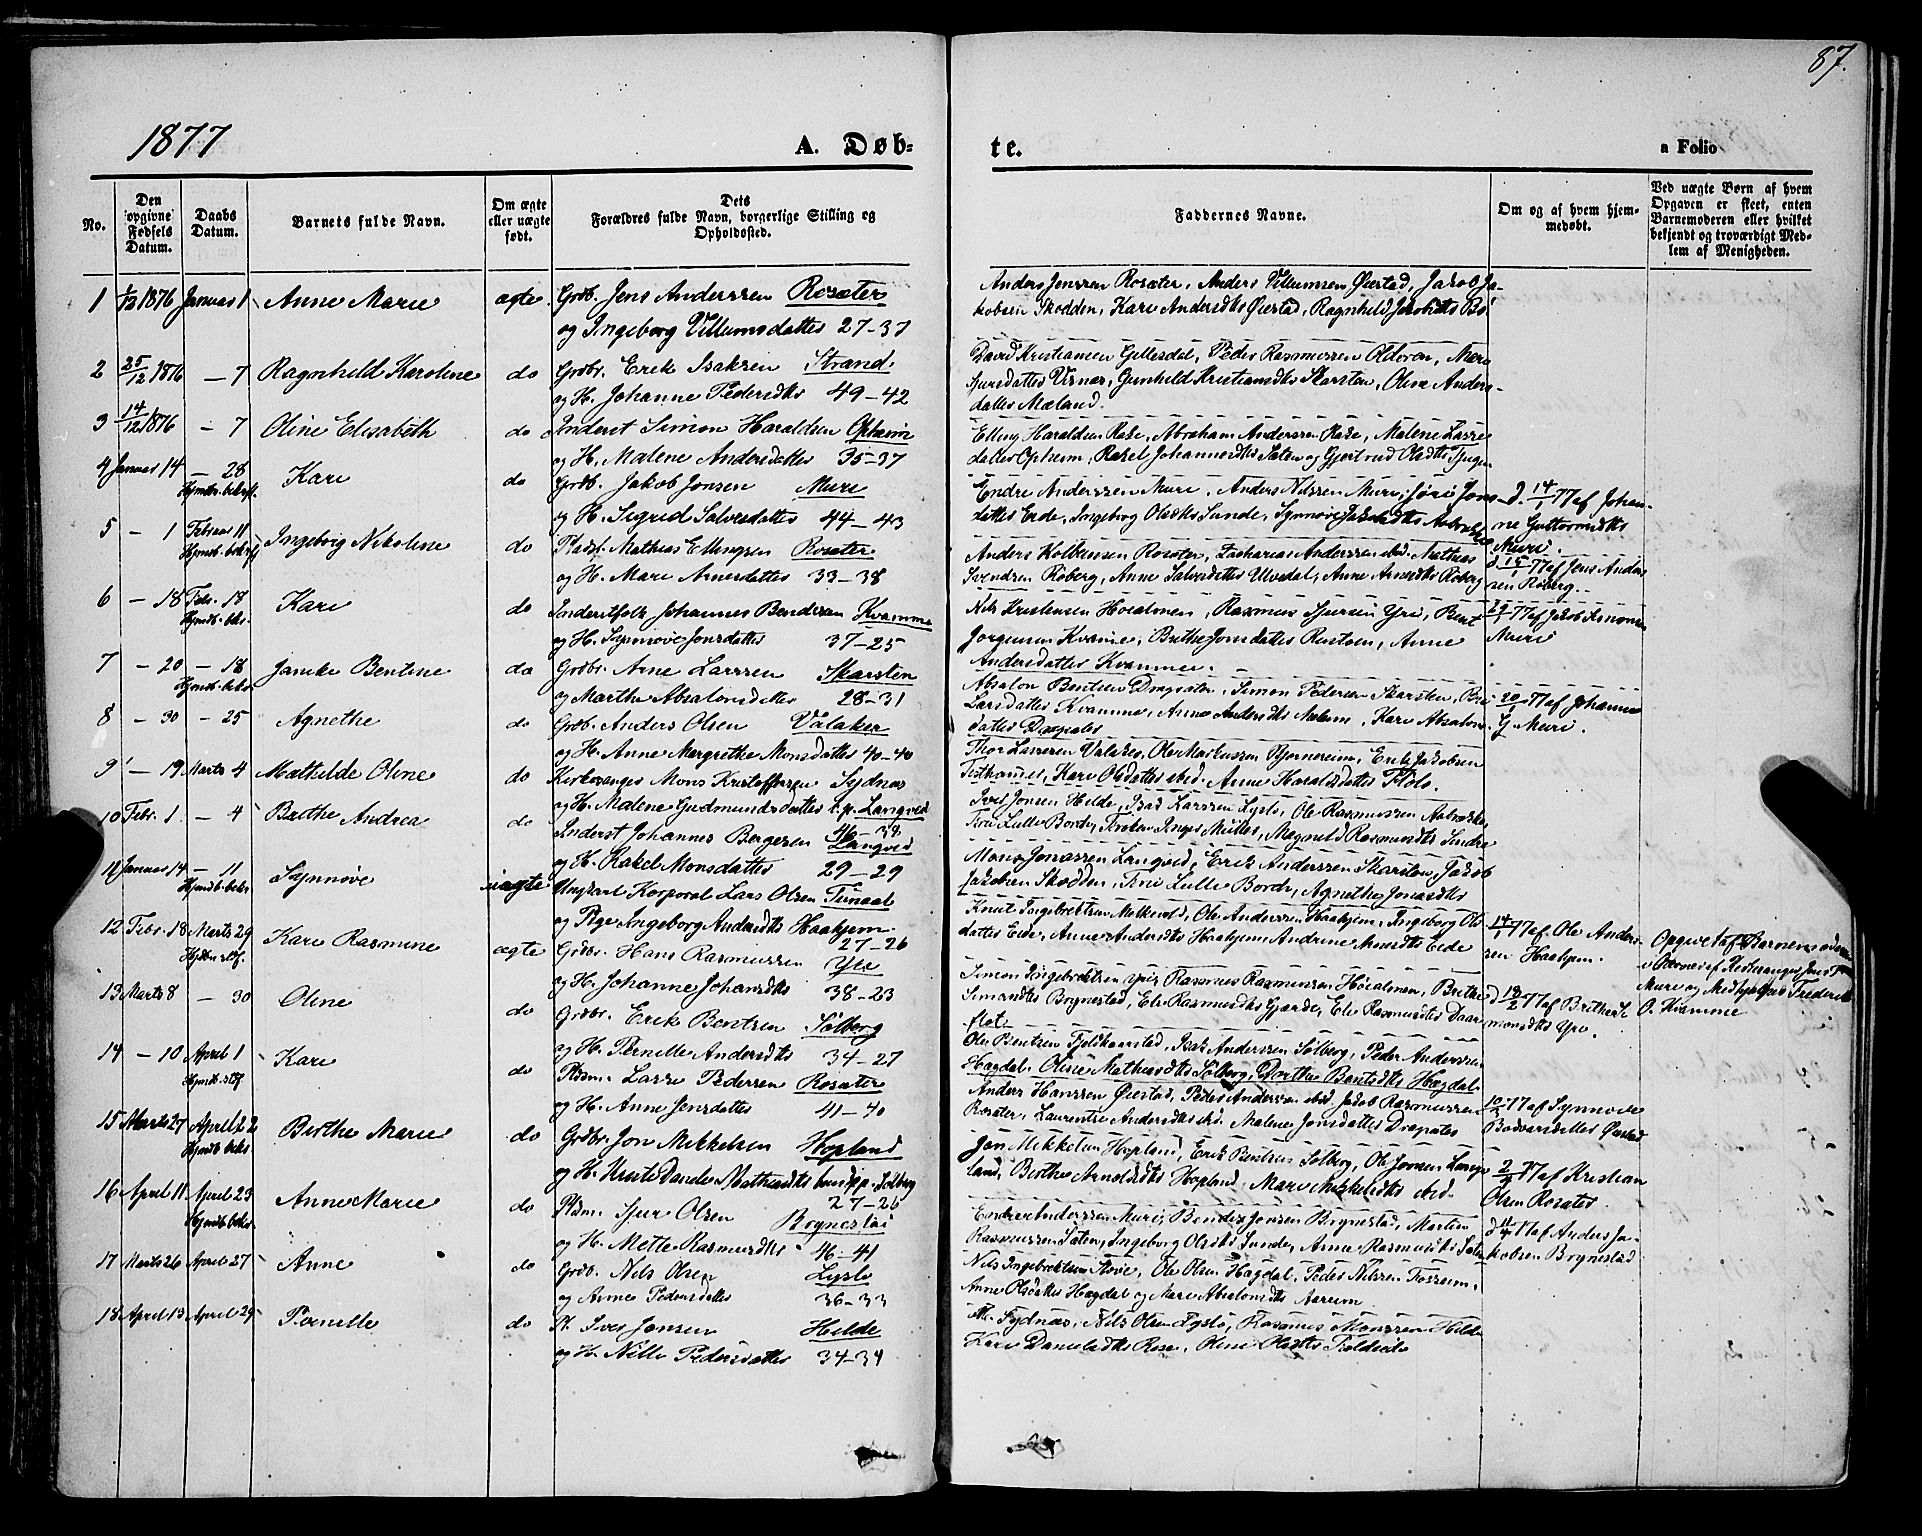 87.
1877
A. Døb-
te.
a Folio
No.
Den opgivne Fødsels Datum.
Daabs Datum.
Barnets fulde Navn.
Om ægte eller uægte født.
Dets Forældres fulde Navn, borgerlige Stilling og Opholdssted.
Faddernes Navne.
Om og af hvem hjemmedøbt.
Ved uægte Børn af hvem Opgaven er skeet, enten Barnemoderen eller hvilket bekjendt og troværdigt Medlem af Menigheden.
1 1/12 1876 Januar 1 Anne Marie ægte Grdb. Jens Anderssen Rosæter
og Ingeborg Villumsdatter 27-37
Anders Jenssen Rosæter, Anders Villumssen Øiestad, Jakob Ja-
kobsen Skodden, Kari Andersdtr Øiestad, Ragnhild Jakobsdtr
2 25/12 1876 - 7 Ragnhild Karoline do Grdbr. Erik Isaksen Strand
og H. Johanne Pedersdtr 49-42
David Kristiansen Gillesdal, Peder Rasmussen Olderen, Mari
Sjursdatter Visnæs, Gunhild Kristiansdtr Skarsten, Oline Anders-
datter Mæland.
3 14/12 1876 - 7 Oline Elisabeth do Inderst Simon Haraldsen Opheim
og H. Malene Andersdatter 35-37
Elling Haraldsen Rake, Abraham Anderssen Rake, Malene Lasse
datter Opheim, Rakel Johannesdtr Sæten og Gjertrud Olsdtr
4 Januar 14 - 28 Kari do Grdb. Jakob Jonsen Muri
Hjmdb. bekrft.
og H. Sigrid Salvesdatter 44-43
Endre Anderssen Muri, Anders Nilssen Muri, Jøri Jons-
datter Eide, Ingeborg Olsdtr Sunde, Synnøve Jakobsdtr
d. 14/1 77 af Johan-
ne Guttormsdtr
Muri.
5 - 1 Februar 11 Ingebrig Nikoline do Pladsf. Mathias Ellingsen Rosæter
Hjmdb. bekrft
og H. Mari Arnesdatter 33-38
Anders Kolbensen Rosæter, Zacharias Anderssen ibid. Mathias
Svendsen Roberg, Anne Salvesdatter Ulvedal, Anne Arnesdtr Roberg
d. 15/1 77 af Jens Anders
sen Roberg.
6 - 18 Febr. 18 Kari do Inderstfolk Johannes Bendixen Kvamme
Hjmdb. bekr.
og H. Synnøve Jonsdatter 37-25
Nils Kristensen Høialmen, Rasmus Sjursen Yri, Bent
Jørgensen Kvamme, Brithe Jonsdatter Rustøen, Anne
Andersdatter Kvamme.
77 af Jakob Simonsen
Muri
7 - 20 - 18 Janike Bentine do Grdbr. Arne Larssen Skarsten
Hjmdb. bekr.
og Marthe Absalonsdatter 28-31
Absalon Bentsen Dragsæter, Simon Pedersen Skarsten, Bri
Larsdatter Kvamme, Anne Andersdtr Mælum, Kari Absalons
datter Dragsæter
20/1 77 af Johanne
G. Muri.
8 - 30 - 25 Agnethe do Grdb. Anders Olsen Valaker
og H. Anne Margrethe Monsdatter 40-40
Thor Larssen Valaker, Ole Markussen Bjørneseim, Erik Jakobsen
Testhammer, Kari Olsdatter ibid. Anne Haraldsdatter Flolo.
9 - 19 Marts 4 Mathilde Oline do Kirkesanger Mons Kristoffersen Sydnæs
og H. Malene Gudmundsdatter t.p. Langvid
46-38
Iver Jonsen Hilde, Isak Larssen Lyslo, Ole Rasmussen
Lille Bordv, Magnild Rasmusdtr
10 Febr. 1 - 4 Berthe Andrea do Inderst Johannes Bergesen Langvid
og H. Rakel Monsdatter 29-29
Mons Jonassen Langvid, Erik Anderssen Skarsten, Jakob
Jakobsen Skodden, Lille Bordv, Agnethe Jonasdtr
11 Januar 14 - 11 Synnøve uægte Ungkarl Korporal Lars Olsen Tunaal
Hjmdb. bekr.
og Pige Ingeborg Andersdtr Haahjem
27-26
Knut Ingebrektsen Melkevold, Ole Anderssen Haahjem, Ingeborg Ols
datter Eide, Anne Andersdtr Haahjem, Andrine Knutsdtr Eide
14/1 77 af Ole Anders-
sen Haahjem.
Opgivet af Barnemoderen
i Nærvær af Kirkesanger Jens
Muri og Medhjælper Frederik
O. Kvamme
12 Febr. 18 Marts 29 Kari Rasmine ægte Grdbr. Hans Rasmussen Yri
og H. Johanne Johansdtr 38-23
Simon Ingebrektsen Yri, Rasmus Rasmussen Høialmen, Brithe
Simonsdtr Brynestad, Eli Rasmusdtr Gjærde, Eli Rasmusdtr
flot.
d. 18/2 77 af Brithe Si
monsdtr Yri.
13 Marts 8 - 30 Oline do Grdbr. Erik Bentsen Solberg
og H. Pernille Andersdtr 34-27
Ole Bentsen Fjelhamstad, Isak Anderssen Solberg, Peder Anderssen
Hagdal, Oline Mathiasdtr Solberg, Dorthe Bentsdtr Hagdal
14 - 10 April 1 Kari do Pldsm. Lasse Pedersen Rosæter
og H. Anne Jensdatter 41-40
Anders Hanssen Øiestad, Peder Anderssen ibid. Jakob Rasmussen
Rosæter, Laurentse Andersdtr ibid. Malene Jonsdatter Dragsæter
77 af Synnøve
Bodvarsdatter Øiestad
15 Marts 27 April 22 Berthe Marie do Grdbr. Jon Mikkelsen Hopland
Hjmdb. bekr.
27-26
Jon Mikkelsen Hopland, Erik Bentsen Solberg, Ole Jonsen Lang
land, Berthe Arnoldsdtr Hopland, Mari Mikkelsdtr ibid.
77 af Kristian
Olsen Rosæter
16 April 11 April 23 Anne Marie do Pldsm. Sjur Olsen Brynestad
Hjmdb. bekr.
og H. Mette Rasmusdtr 46-41
Endre Anderssen Muri, Bendix Jonsen Brynestad, Martin
Rasmussen Sæten, Ingeborg Olsdtr Sunde, Anne Rasmusdtr Sæten
77 af Anders Ja-
kobsen Brynestad
17 Marts 26 April 27 Anne do Grdb. Nils Olsen Lyslo
og Anne Pedersdatter 36-33
Nils Ingebrektsen Støve, Ole Olsen Hagdal, Peder Nilssen Fosseim,
Anne Olsdatter Hagdal og Mari Absalonsdtr Aarrem.
18 April 13 April 29 Pernille do Iver Jonsen Hilde
og H. Nille Pedersdatter 34-34
M. Sydnæs, Nils Olsen Lyslo, Rasmus Monssen Hilde
Kari Danielsdtr Rose, Oline Olsdtr